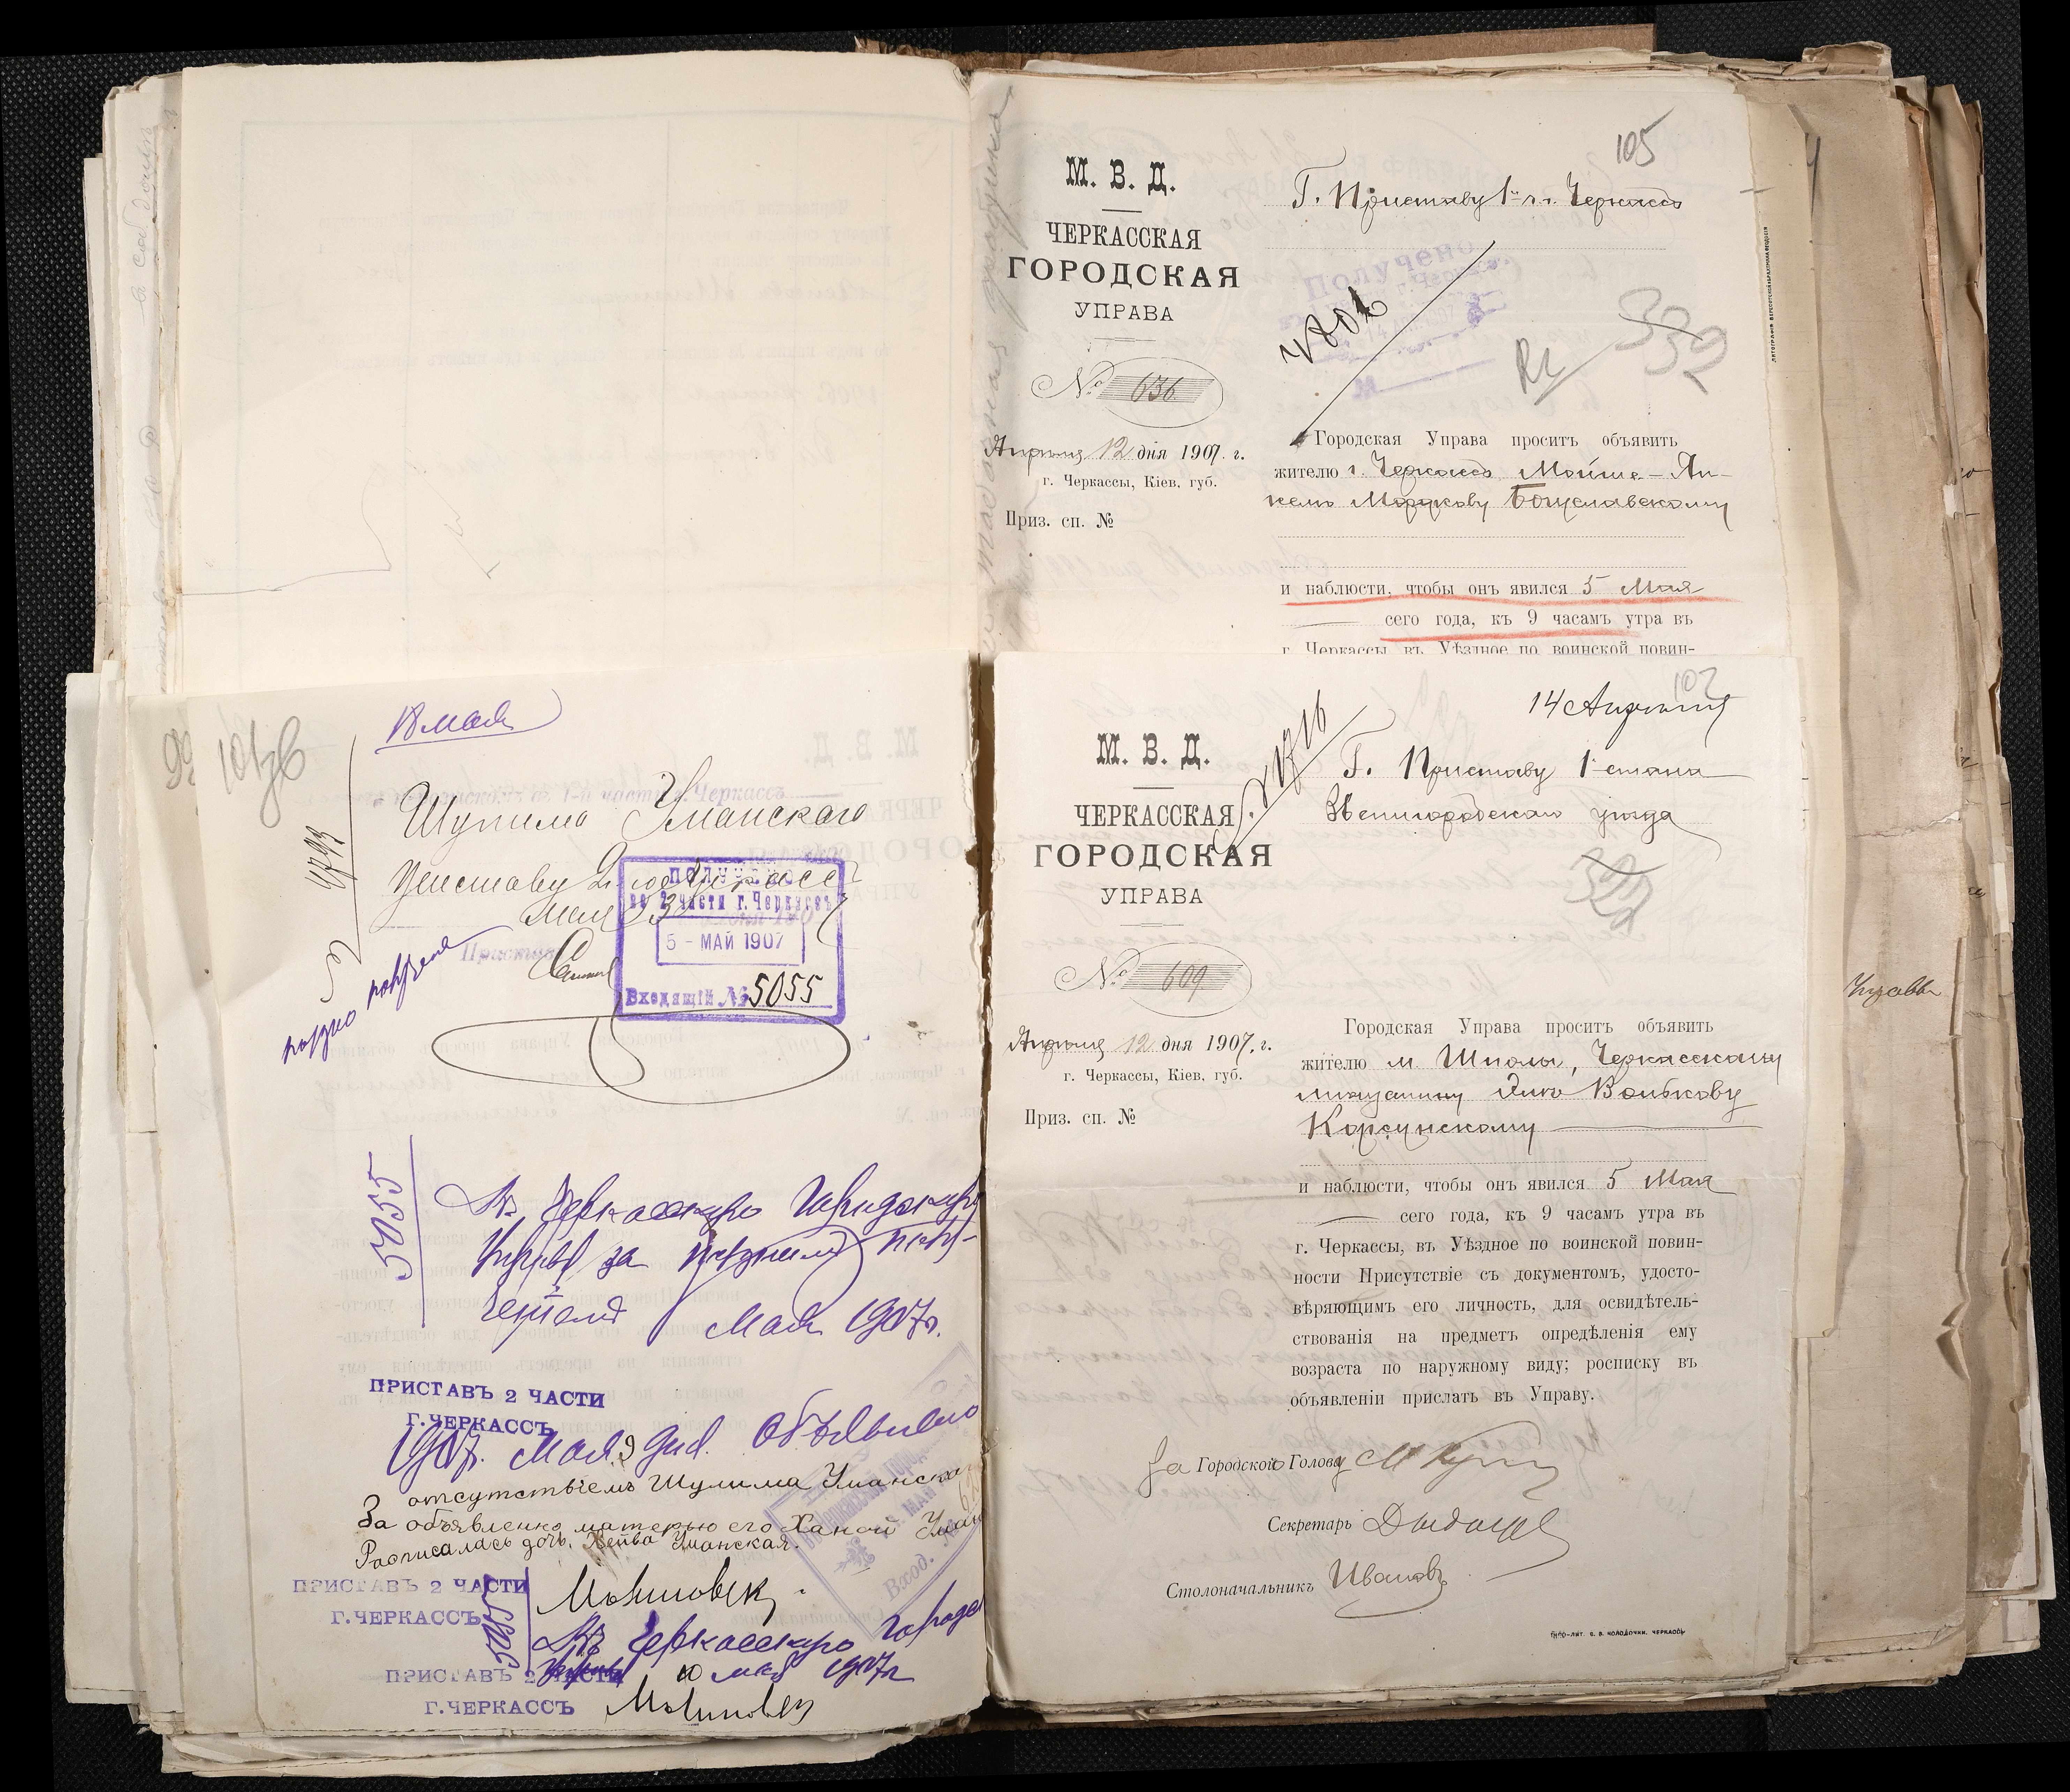 105
М. В. Д.
ЧЕРКАССКАЯ
ГОРОДСКАЯ
УПРАВА
№ 636.
Апреля 12 дня 1907. г.
г. Черкассы, Кіев. губ.
Приз. сп. №
Г. Приставу 1 ч. г. Черкассъ
Получено
339
Городская Управа проситъ объявить
жителю г. Черкассъ Мойше-Ян-
келю Моркову Богуславскому
и наблюсти, чтобы онъ явился 5 Мая
сего года, къ 9 часамъ утра въ
г. Черкассы, въ Уѣздное по воинской повин-
18 мая
Шулима Уманскаго
Приставу 2 ч. г. Черкассъ
Мая 3
Приставъ
ПОЛУЧЕНО
во 2 части г. Черкассъ
5 - МАЙ 1907
Входящій № 5055
5055
Въ Черкасскую Городскую
Управу за
Мая 1907 г.
ПРИСТАВЪ 2 ЧАСТИ
Г. ЧЕРКАССЪ
1907. Мая 9 дня. Объявлено
За отсутствіемъ Шулима Уманска
объявлено матерью его Ханой Уман
Росписалась дочь. Хейва Уманская.
ПРИСТАВЪ 2 ЧАСТИ
Г. ЧЕРКАССЪ
Въ Черкасскую Городс
10 мая 1907 г
ПРИСТАВЪ 2 ЧАСТИ
Г. ЧЕРКАССЪ
14 Апреля
М. В. Д.
ЧЕРКАССКАЯ
ГОРОДСКАЯ
УПРАВА
№ 609.
Апреля 12 дня 1907. г.
г. Черкассы, Кіев. губ.
Приз. сп. №
Г. Приставу 1 стана
Звенигородскаго уезда
Городская Управа проситъ объявить
жителю м. Шполы, Черкасскому
мещанину Элю Волькову
Корсунскому
и наблюсти, чтобы онъ явился 5 Мая
сего года, къ 9 часамъ утра въ
г. Черкассы, въ Уѣздное по воинской повин-
ности Присутствіе съ документомъ, удосто-
вѣряющимъ его личность, для освидѣтель-
ствованія на предметъ опредѣленія ему
возраста по наружному виду; росписку въ
объявленіи прислать въ Управу.
За Городского Голову
Секретарь
Столоначальникъ Ивановъ